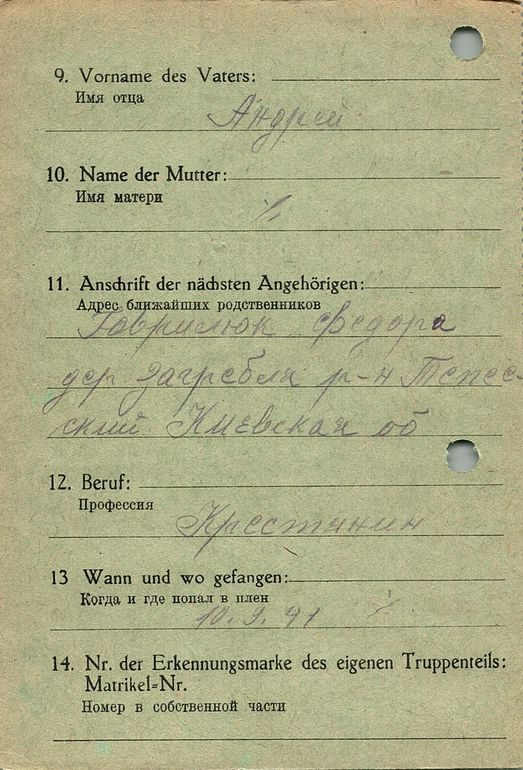 9. Vorname des Vaters:
Имя отца
Андрей
10. Name der Mutter:
Имя матери
⁒
11. Anschrift der nächsten Angehörigen:
Адрес ближайших родственников
Гаврилюк Федора
дер Загребля р-н Тетес-
ский Киевская об
12. Beruf:
Профессия
Крестянин
13 Wann und wo gefangen:
Когда и где попал в плен
10. 9. 41 ⁒
14. Nr. der Erkennungsmarke des eigenen Truppenteils:
Matrikel-Nr.
Номер в собственной части